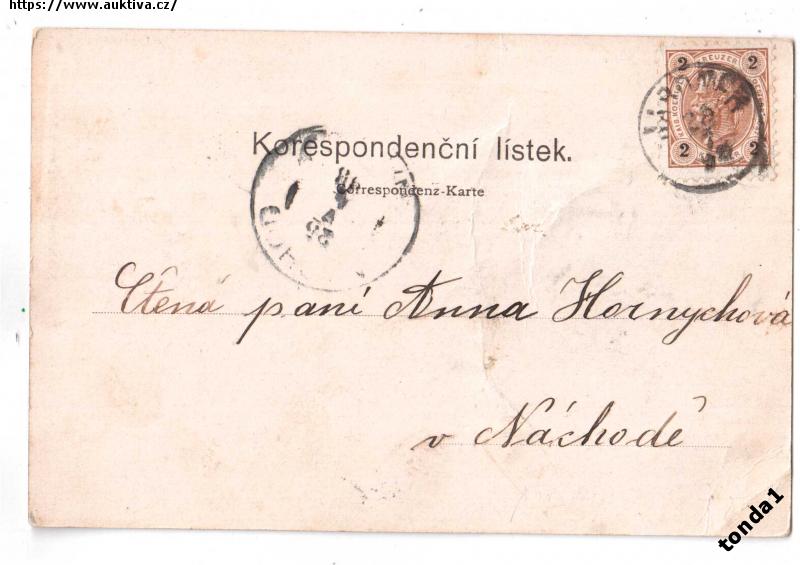 https://www.auktiva.cz/
2 KREUZER 2
2 2
Korespondenční lístek.
Correspondenz-Karte
Ctěná paní Anna Hornychová
v Náchodě
tonda1